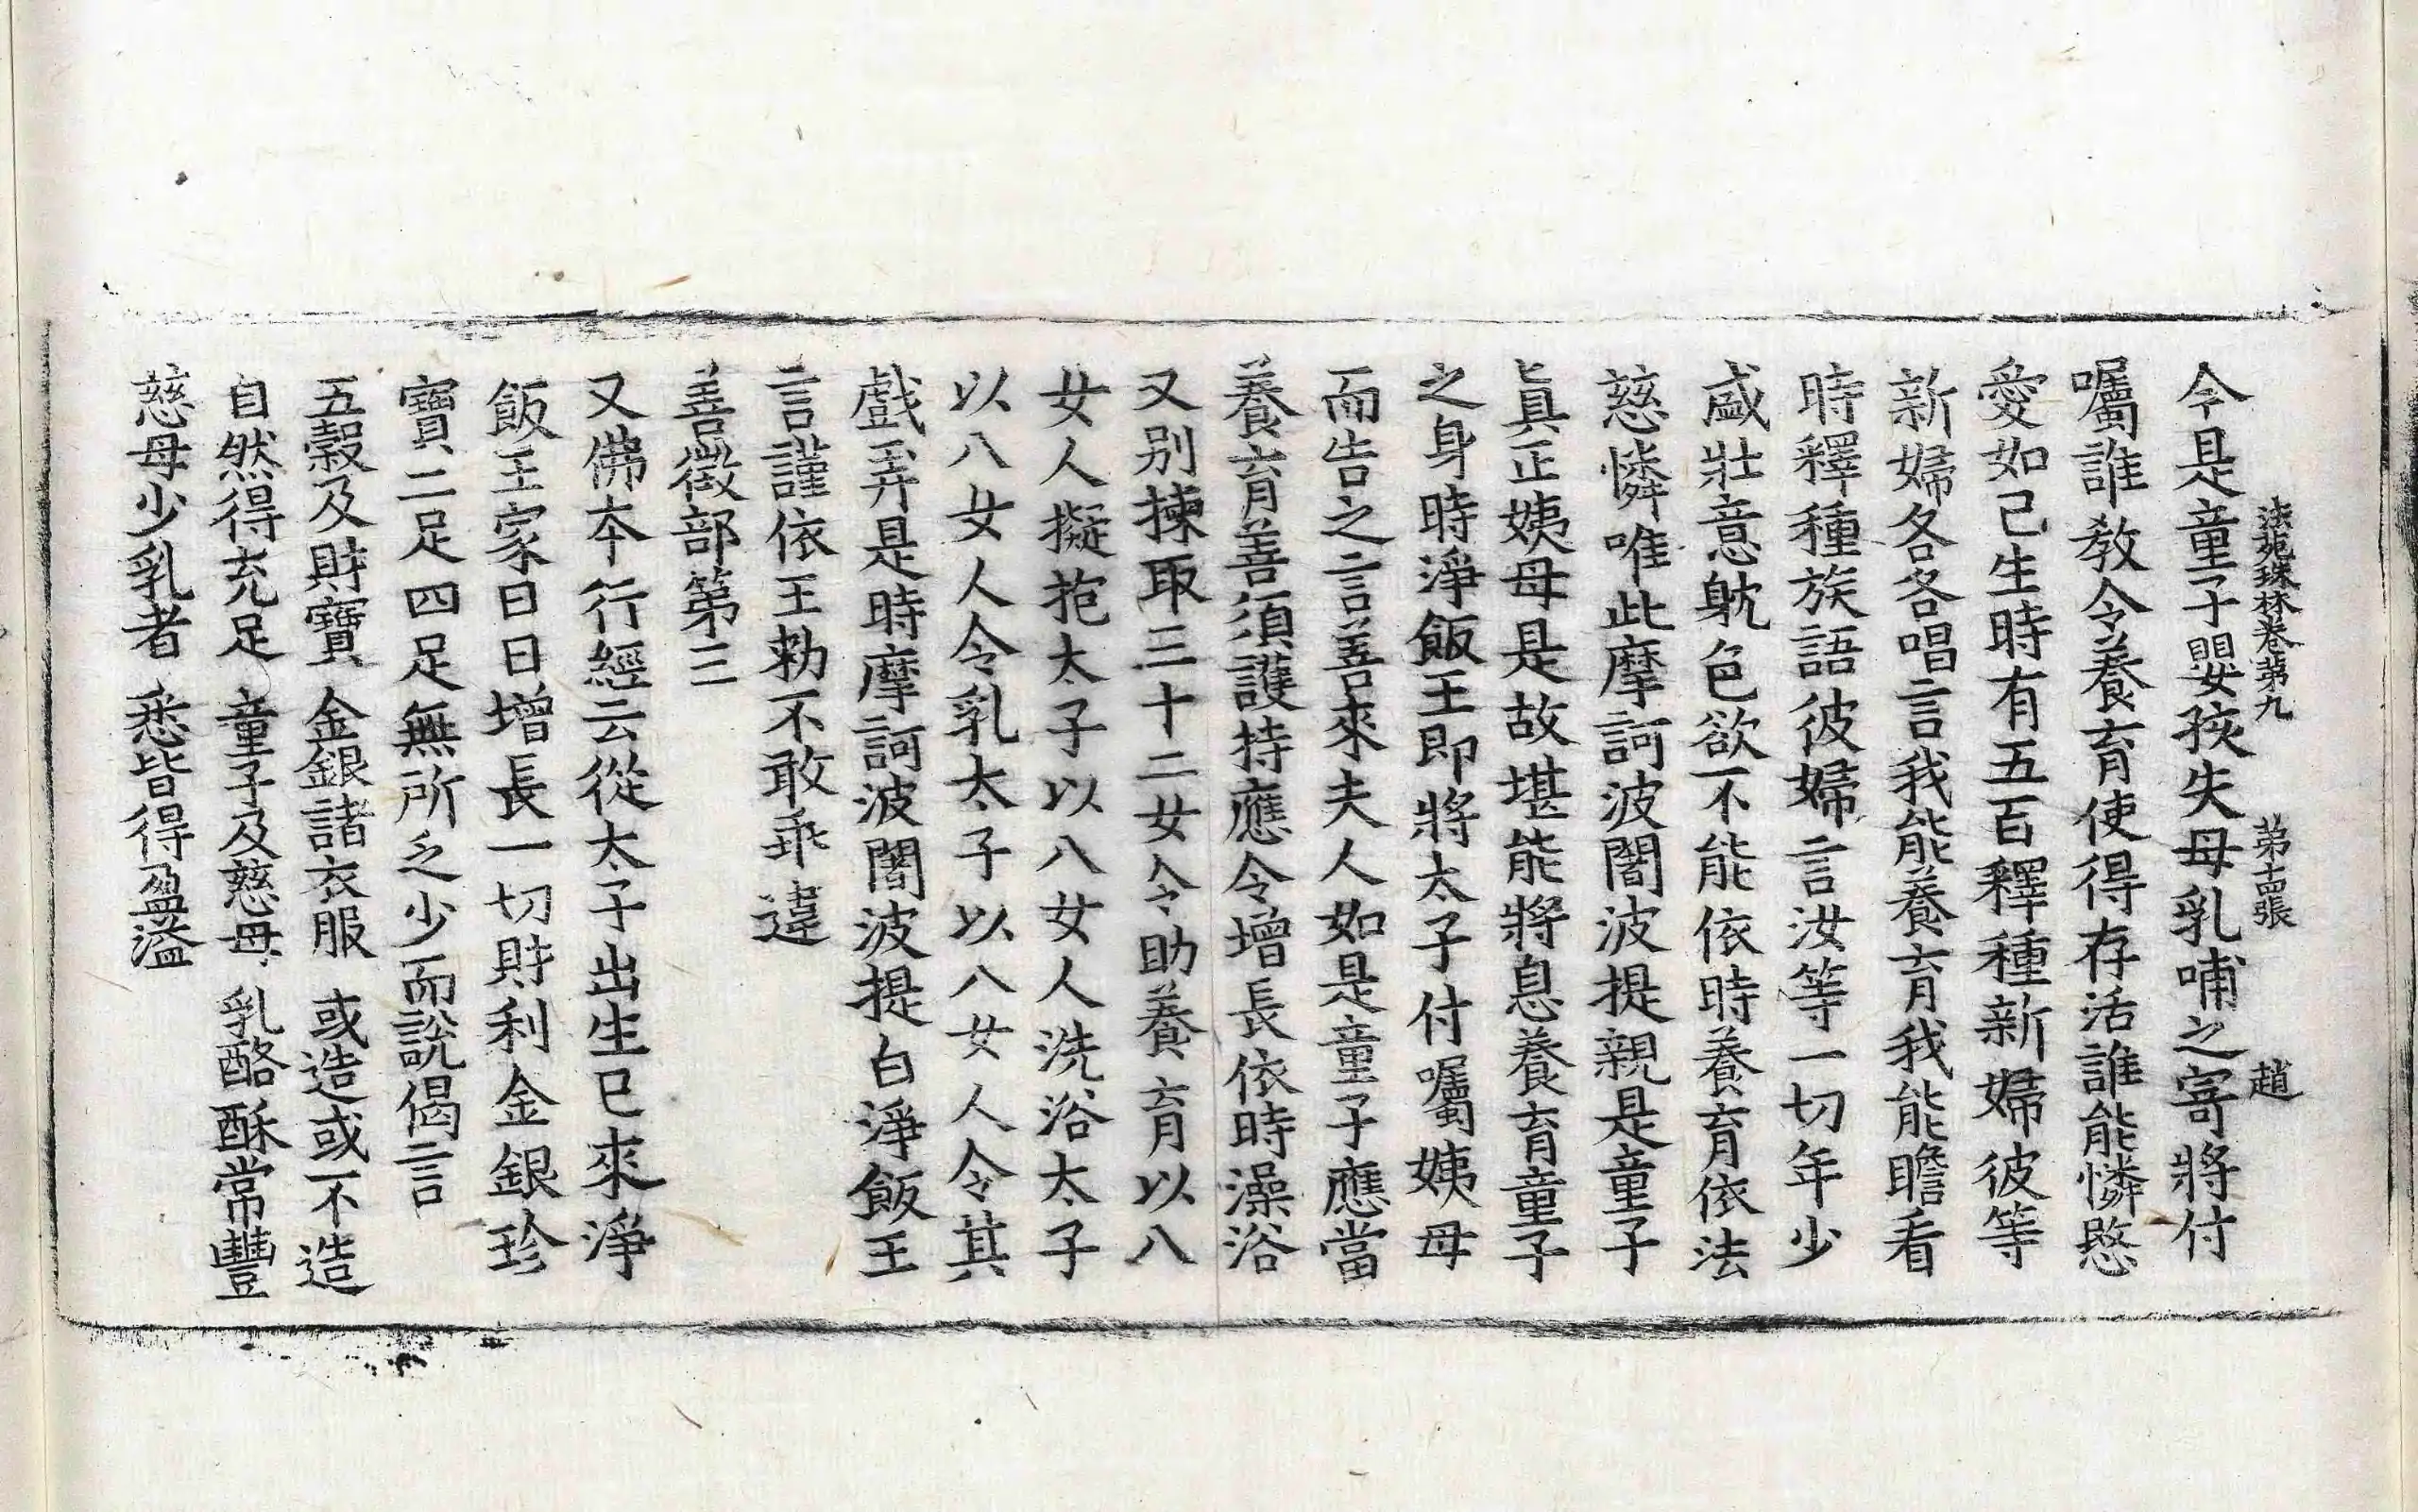 法苑珠林卷第九 第十四張 趙
今是童子嬰孩失母乳哺之寄將付
囑誰教令養育使得存活誰能憐愍
愛如己生時有五百釋種新婦彼等
新婦各各唱言我能養育我能瞻看
時釋種族語彼婦言汝等一切年少
盛壯意躭色欲不能依時養育依法
慈憐唯此摩訶波闍波提親是童子
真正姨母是故堪能將息養育童子
之身時淨飯王即將太子付囑姨母
而告之言善來夫人如是童子應當
養育善須護持應令增長依時澡浴
又別揀取三十二女令助養育以八
女人擬抱太子以八女人洗浴太子
以八女人令乳太子以八女人令其
戲弄是時摩訶波闍波提白淨飯王
言謹依王勑不敢乖違
善徵部第三
又佛本行經云從太子出生已來淨
飯王家日日增長一切財利金銀珍
寶二足四足無所乏少而說偈言
五穀及財寶 金銀諸衣服 或造或不造
自然得充足 童子及慈母 乳酪酥常豐
慈母少乳者 悉皆得盈溢